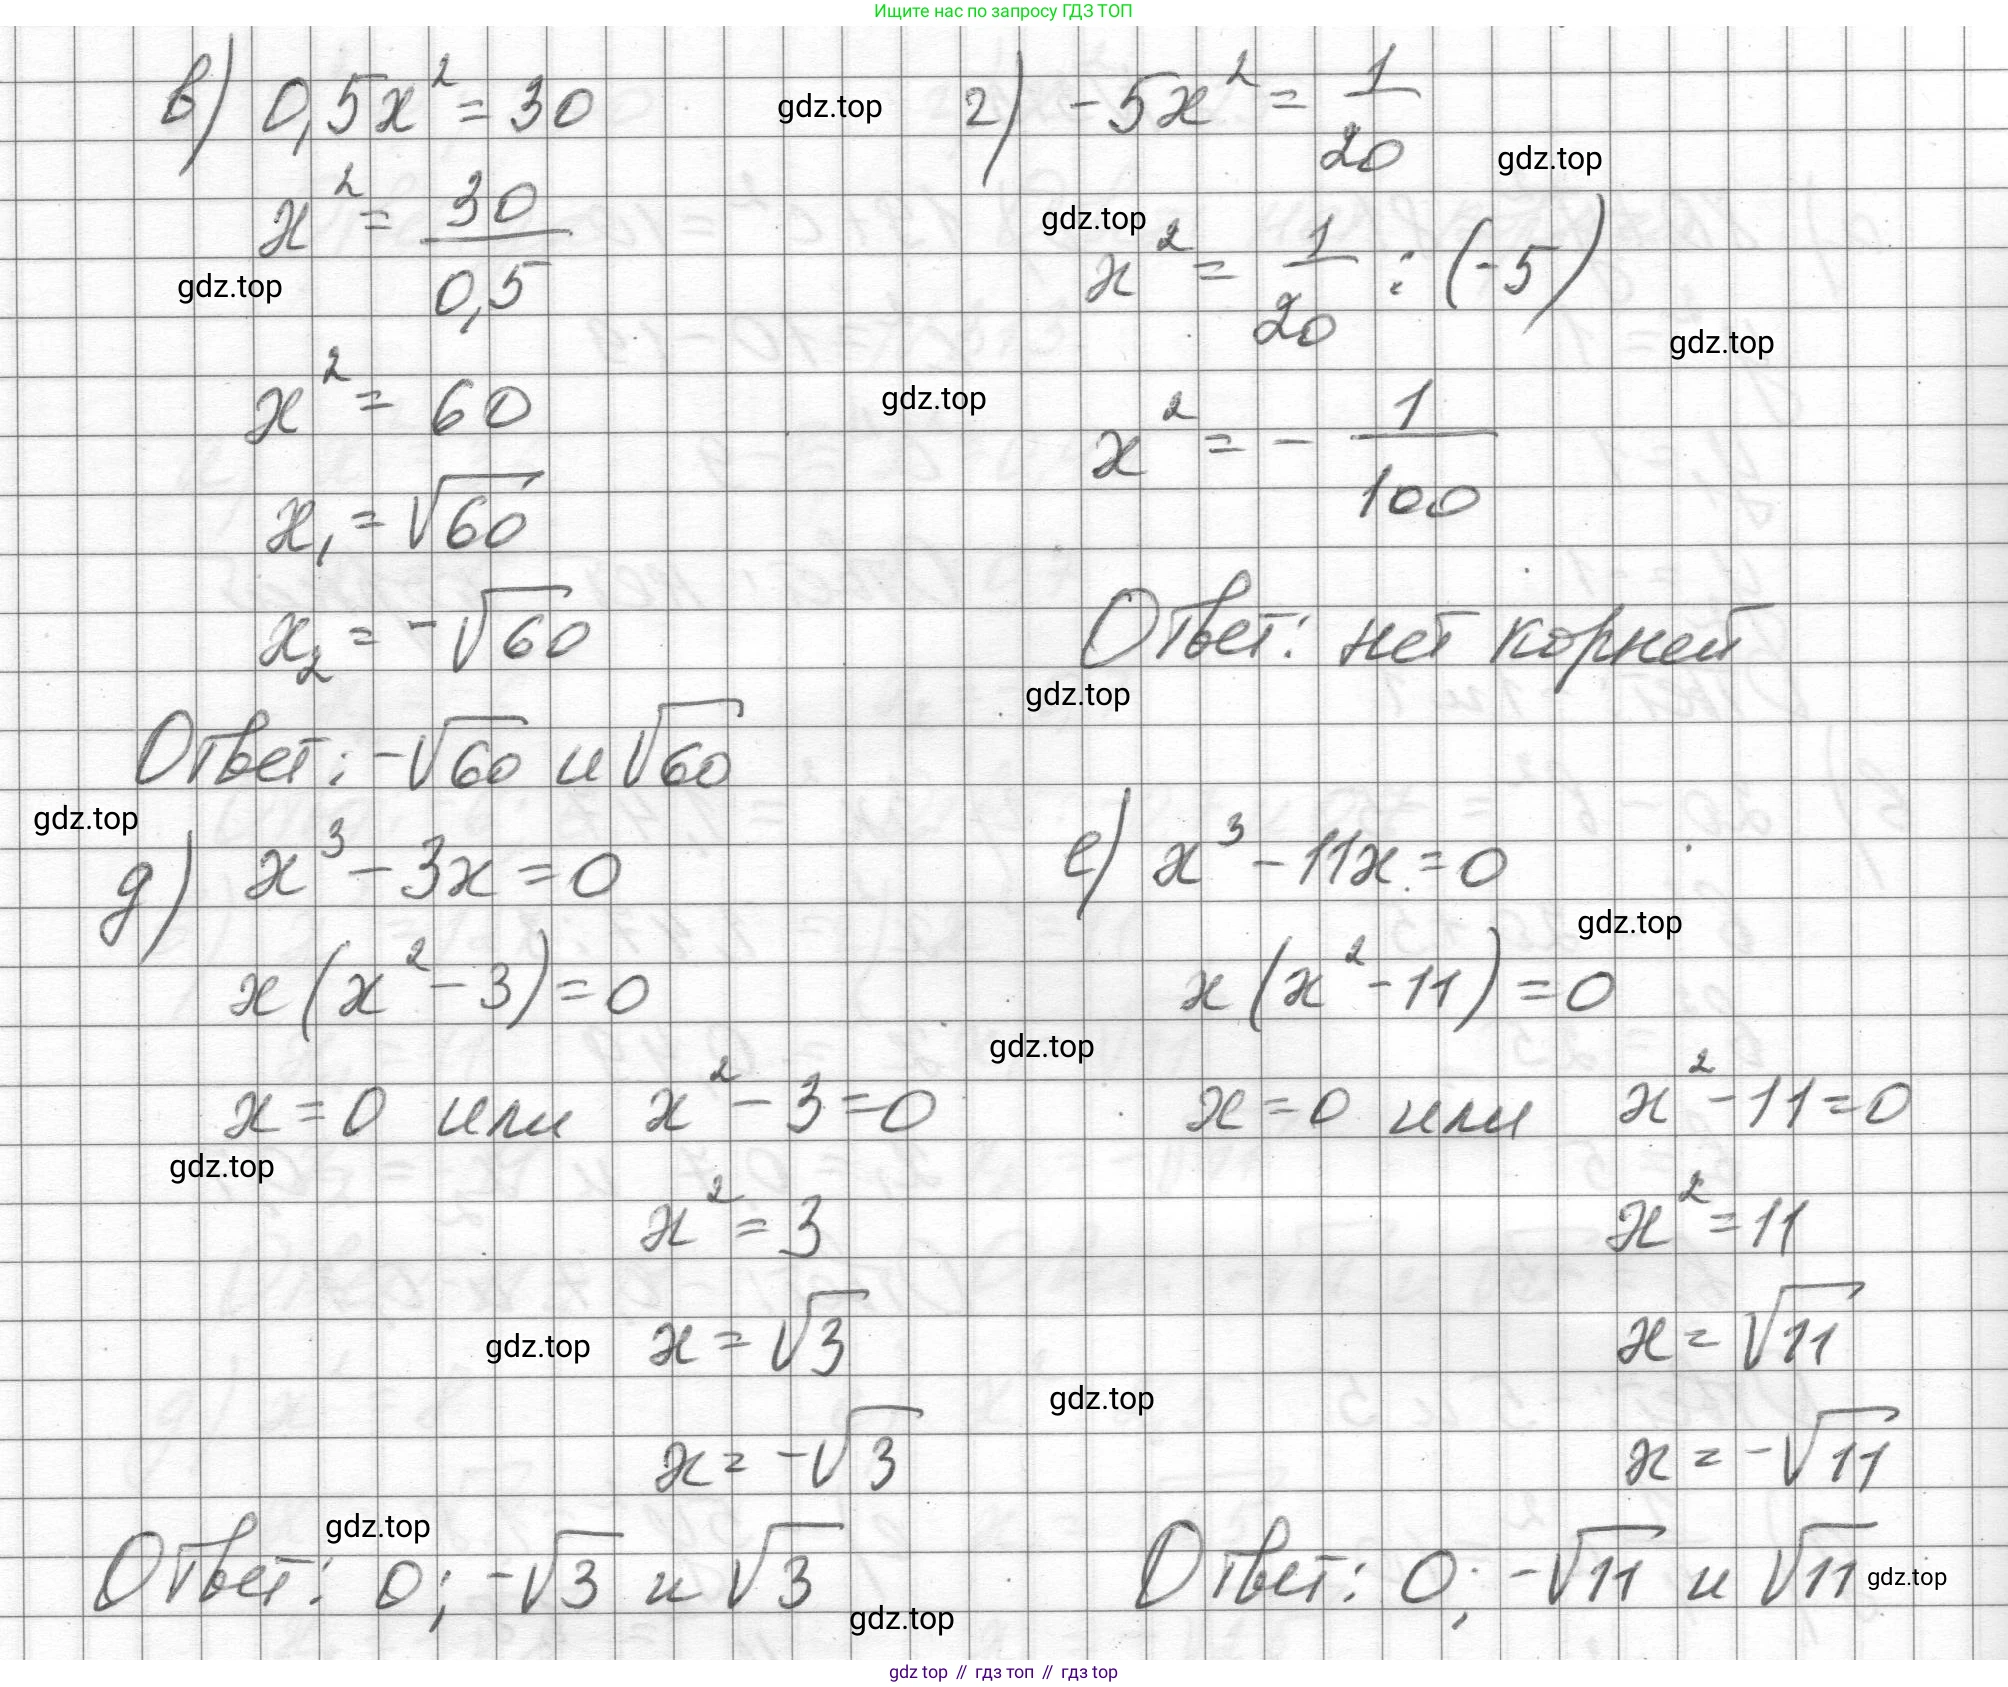 Ищите нас по запросу ГДЗ ТОП
в) 0,5x² = 30
gdz.top
x² = 30/0,5
gdz.top
x² = 60
x₁ = √60
x₂ = -√60
Ответ: -√60 и √60
gdz.top
г) -5x² = 1/20
gdz.top
gdz.top
x² = 1/20 : (-5)
gdz.top
gdz.top
x² = - 1/100
Ответ: нет корней
gdz.top
д) x³ - 3x = 0
x(x² - 3) = 0
x = 0 или x² - 3 = 0
gdz.top
x² = 3
gdz.top
x = √3
x = -√3
gdz.top
Ответ: 0; -√3 и √3
gdz.top
е) x³ - 11x = 0
gdz.top
x(x² - 11) = 0
gdz.top
x = 0 или x² - 11 = 0
x² = 11
x = √11
gdz.top
x = -√11
Ответ: 0; -√11 и √11
gdz.top
gdz top // гдз топ // гдз top